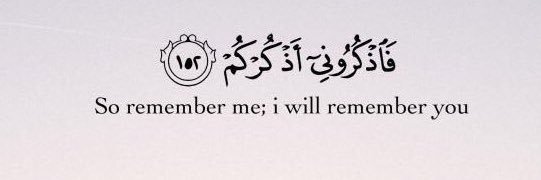 فَٱذۡكُرُونِيٓ أَذۡكُرۡكُمۡ ١٥٢
So remember me; i will remember you